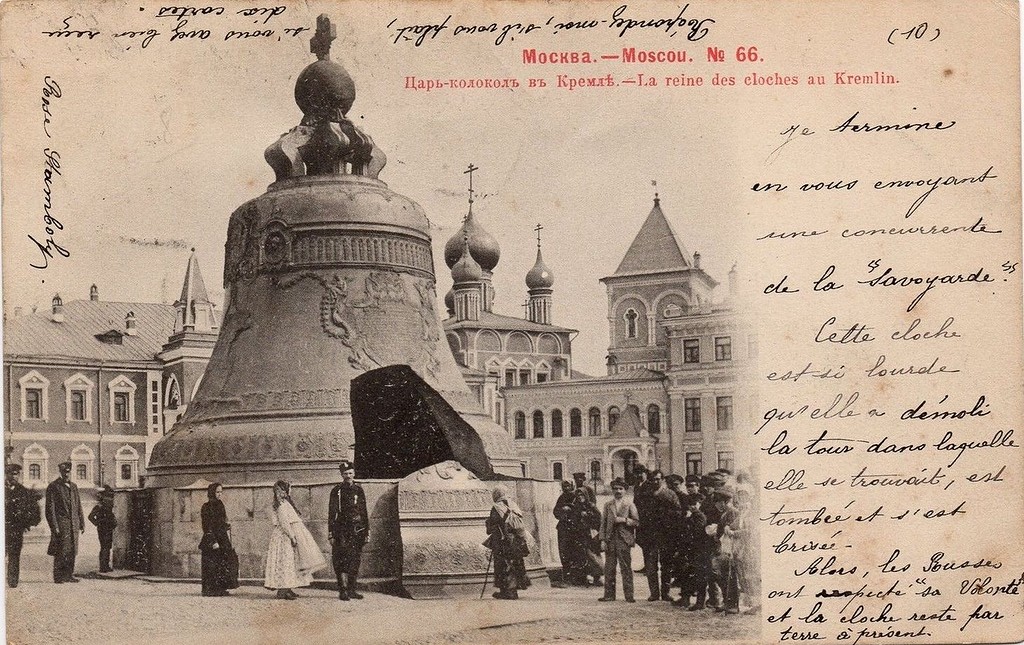 Répondez-moi, s'il vous plaît,
si vous avez bien reçu
dia cartes.
(10)
Москва.—Moscou. № 66.
Царь-колоколъ въ Кремлѣ.—La reine des cloches au Kremlin.
Rose Stamboly.
Je termine
en vous envoyant
une concurrente
de la "Savoyarde".
Cette cloche
est si lourde
qu'elle a démoli
la tour dans laquelle
elle se trouvait, est
tombée et s'est
brisée.
Alors, les Russes
ont respecté "sa Volonté"
et la cloche reste par
terre à présent.